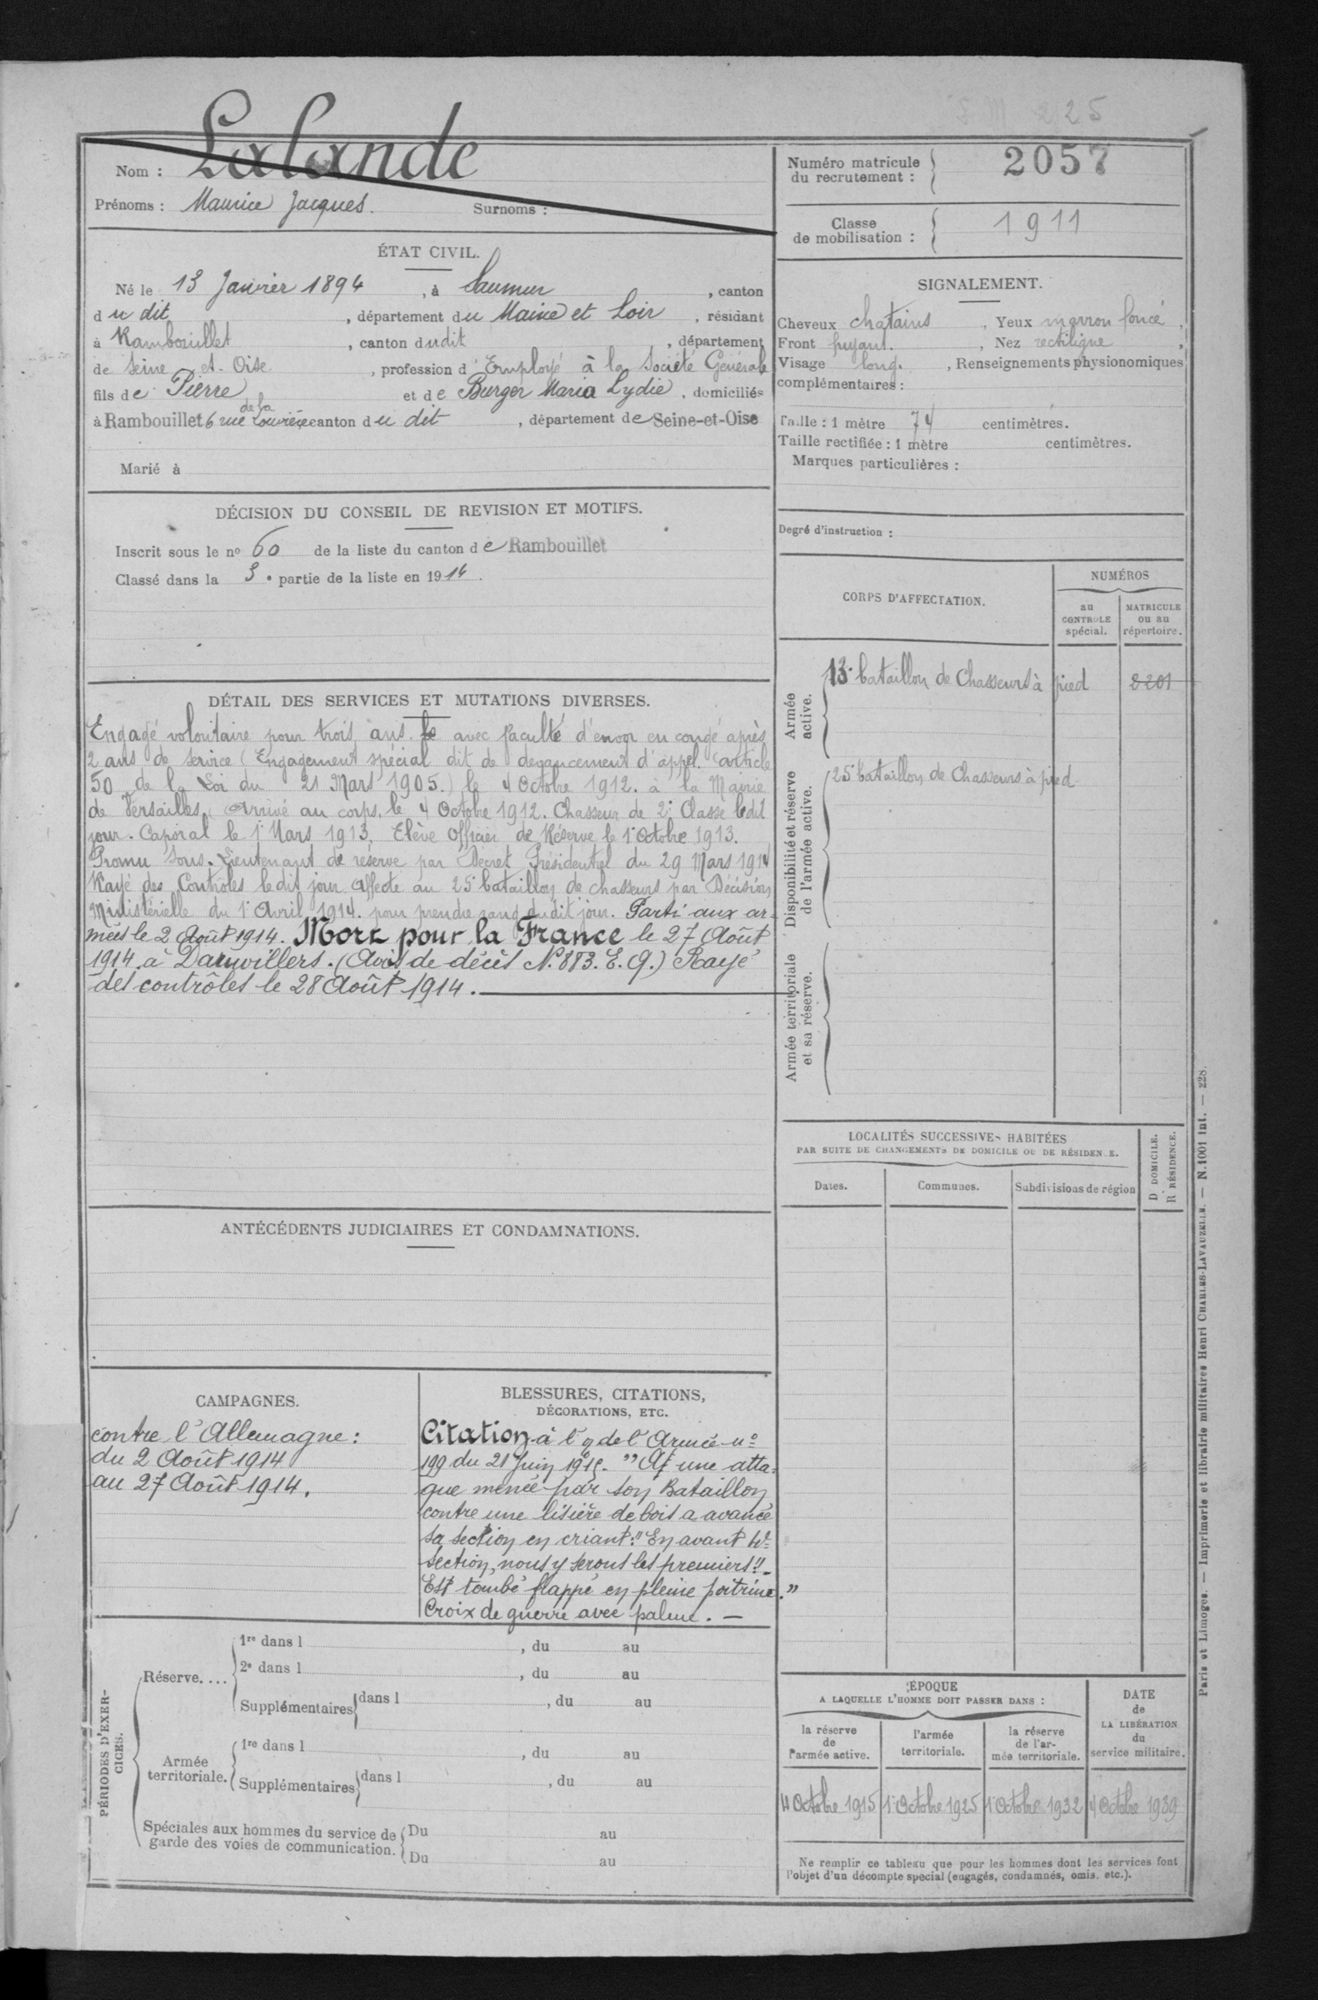 Nom : Lalande
Prénoms : Maurice Jacques. Surnoms :
ÉTAT CIVIL.
Né le 13 Janvier 1894, à Saumur, canton
du dit, département du Maine et Loir, résidant
à Rambouillet, canton dudit, département
de Seine et Oise, profession d'Employé à la Société Générale
fils de Pierre et de Burger Maria Lydie, domiciliés
à Rambouillet 6 rue de la Louvière canton du dit, département de Seine-et-Oise
Marié à
DÉCISION DU CONSEIL DE REVISION ET MOTIFS.
Inscrit sous le no 60 de la liste du canton de Rambouillet
Classé dans la 3e partie de la liste en 1914.
DÉTAIL DES SERVICES ET MUTATIONS DIVERSES.
Engagé volontaire pour trois ans le avec faculté d'envoi en congé après
2 ans de service (Engagement spécial dit de devancement d'appel. (article
50 de la Loi du 21 Mars 1905.) le 4 Octobre 1912. à la Mairie
de Versailles, Arrivé au corps le 4 Octobre 1912. Chasseur de 2e Classe ledit
jour. Caporal le 1er Mars 1913, Elève officier de Réserve le 1er Octobre 1913.
Promu Sous-Lieutenant de réserve par Décret Présidentiel du 29 Mars 1914
Rayé des Contrôles ledit jour Affecté au 25e bataillon de chasseurs par Décision
Ministérielle du 1er Avril 1914. pour prendre rang dudit jour. Parti aux ar-
mées le 2 Août 1914. Mort pour la France le 27 Août
1914 à Damvillers. (Avis de décès No. 883. E. G.) Rayé
des contrôles le 28 Août 1914.
ANTÉCÉDENTS JUDICIAIRES ET CONDAMNATIONS.
CAMPAGNES.
contre l'Allemagne :
du 2 Août 1914
au 27 Août 1914.
BLESSURES, CITATIONS,
DÉCORATIONS, ETC.
Citation à l'o de l'Armée no
199 du 21 Juin 1915. "A une atta-
que menée par son Bataillon
contre une lisière de bois a avancé
sa section en criant : "En avant 4e
section, nous y serons les premiers".
Est tombé flappé en pleine poitrine."
Croix de guerre avec palme.
PÉRIODES D'EXER-
CICES.
Réserve....
1re dans l , du au
2e dans l , du au
Supplémentaires dans l , du au
Armée
territoriale.
1re dans l , du au
Supplémentaires dans l , du au
Spéciales aux hommes du service de
garde des voies de communication.
Du au
Du au
225
Numéro matricule
du recrutement : 2057
Classe
de mobilisation : 1911
SIGNALEMENT.
Cheveux chatains, Yeux marron foncé,
Front fuyant., Nez rectiligne,
Visage long., Renseignements physionomiques
complémentaires :
Taille : 1 mètre 74 centimètres.
Taille rectifiée : 1 mètre centimètres.
Marques particulières :
Degré d'instruction :
CORPS D'AFFECTATION.
NUMÉROS
au
CONTROLE
spécial.
MATRICULE
ou au
répertoire.
Armée
active.
13e bataillon de Chasseurs à pied 2201
Disponibilité et réserve
de l'armée active.
25e bataillon de Chasseurs à pied
Armée territoriale
et sa réserve.
LOCALITÉS SUCCESSIVES HABITÉES
PAR SUITE DE CHANGEMENTS DE DOMICILE OU DE RÉSIDENCE.
Dates. Communes. Subdivisions de région
D DOMICILE.
R RÉSIDENCE.
ÉPOQUE
A LAQUELLE L'HOMME DOIT PASSER DANS :
la réserve
de
l'armée active.
l'armée
territoriale.
la réserve
de l'ar-
mée territoriale.
DATE
de
LA LIBÉRATION
du
service militaire.
4 Octobre 1915 1er Octobre 1925 1er Octobre 1932 4 Octobre 1939
Ne remplir ce tableau que pour les hommes dont les services font
l'objet d'un décompte spécial (engagés, condamnés, omis. etc.).
Paris et Limoges. — Imprimerie et librairie militaires Henri CHARLES-LAVAUZELLE. — N. 1001 int. — 228.